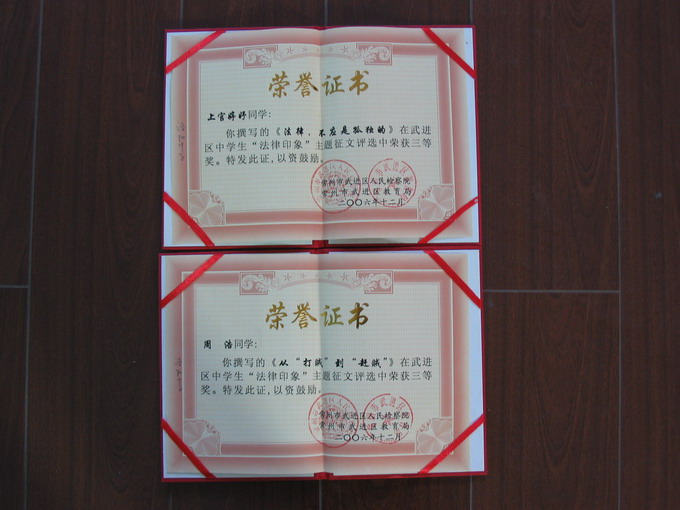 荣誉证书
上官婷妤同学:
你撰写的《法律,不应是孤独的》在武进
区中学生“法律印象”主题征文评选中荣获三等
奖。特发此证,以资鼓励。
常州市武进区人民检察院
常州市武进区教育局
二〇〇六年十二月
荣誉证书
周 浩同学:
你撰写的《从“打贼”到“赶贼”》在武进
区中学生“法律印象”主题征文评选中荣获三等
奖。特发此证,以资鼓励。
常州市武进区人民检察院
常州市武进区教育局
二〇〇六年十二月